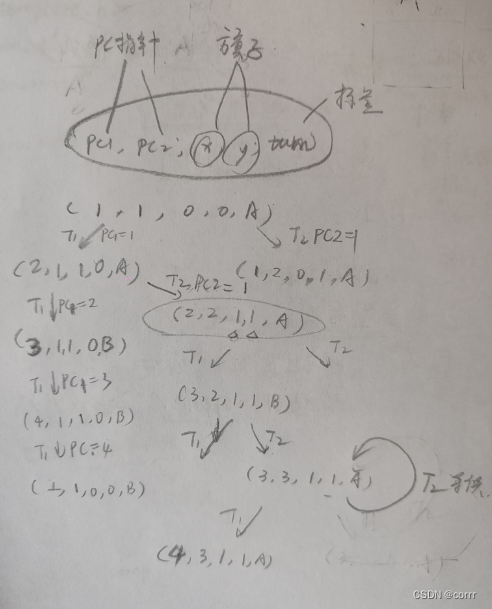 PC指针 旗子
PC1, PC2; x y; turn 标量
(1, 1, 0, 0, A)
T1 PC1=1 T2 PC2=1
(2, 1, 1, 0, A) T2, PC2=1 (1, 2, 0, 1, A)
T1 ↓ PC1=2 (2, 2, 1, 1, A)
(3, 1, 1, 0, B) T1 T2
T1 ↓ PC1=3 (3, 2, 1, 1, B)
(4, 1, 1, 0, B) T1 T2
T1 ↓ PC=4
(1, 1, 0, 0, B) (3, 3, 1, 1, A) T2
T1
(4, 3, 1, 1, A)
CSDN @corrr